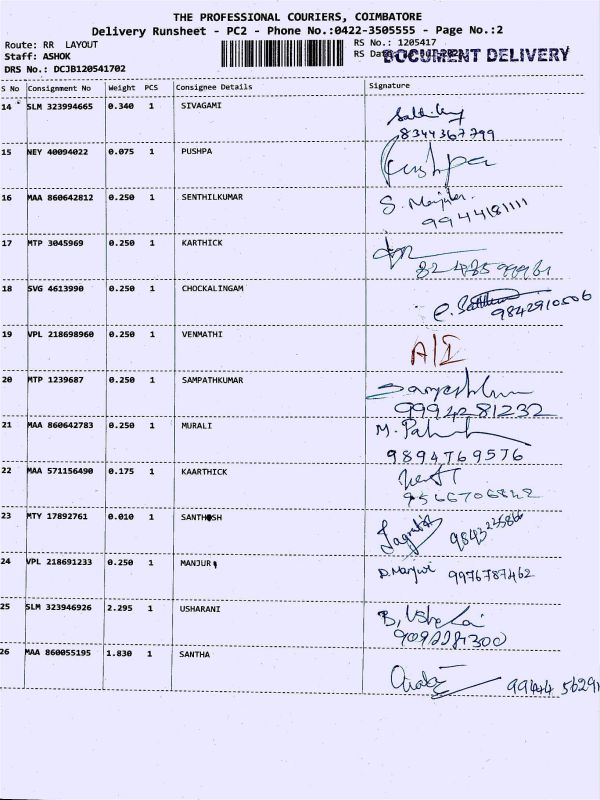 THE PROFESSIONAL COURIERS, COIMBATORE
Delivery Runsheet - PC2 - Phone No.:0422-3505555 - Page No.:2
Route: RR LAYOUT
RS No.: 1205417
Staff: ASHOK
RS Date:
DOCUMENT DELIVERY
DRS No.: DCJB120541702
S No Consignment No Weight PCS Consignee Details Signature
14 SLM 323994665 0.340 1 SIVAGAMI
8344367799
15 NEY 40094022 0.075 1 PUSHPA Pushpa
16 MAA 860642812 0.250 1 SENTHILKUMAR S.
9944181111
17 MTP 3045969 0.250 1 KARTHICK
18 SVG 4613990 0.250 1 CHOCKALINGAM
9842910506
19 VPL 218698960 0.250 1 VENMATHI A/I
20 MTP 1239687 0.250 1 SAMPATHKUMAR
9994281232
21 MAA 860642783 0.250 1 MURALI M.
9894769576
22 MAA 571156490 0.175 1 KAARTHICK
9566706842
23 MTY 17892761 0.010 1 SANTHOSH
24 VPL 218691233 0.250 1 MANJUR
9976787462
25 SLM 323946926 2.295 1 USHARANI B,
9092281300
26 MAA 860055195 1.830 1 SANTHA
99444 56291